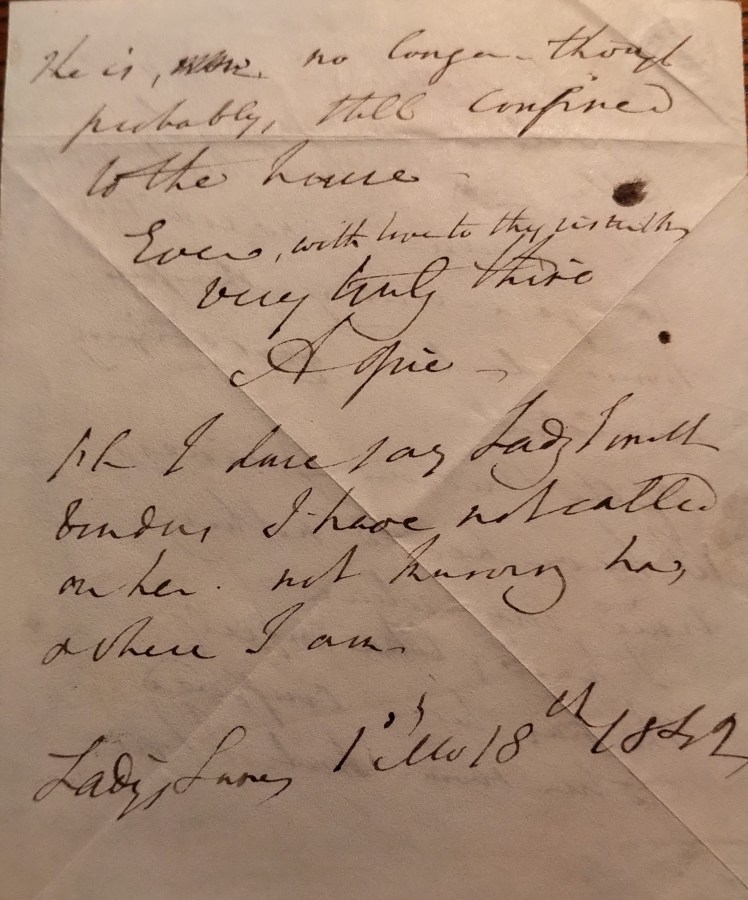 He is, no longer - though
probably, still confined
to the house -
Ever, with love to thy sister
very truly thine
A Opie -
I dare say Lady Smith
I have not called
on her. not knowing how,
& where I am.
Lady's Lane 1st Mo 18th 1842